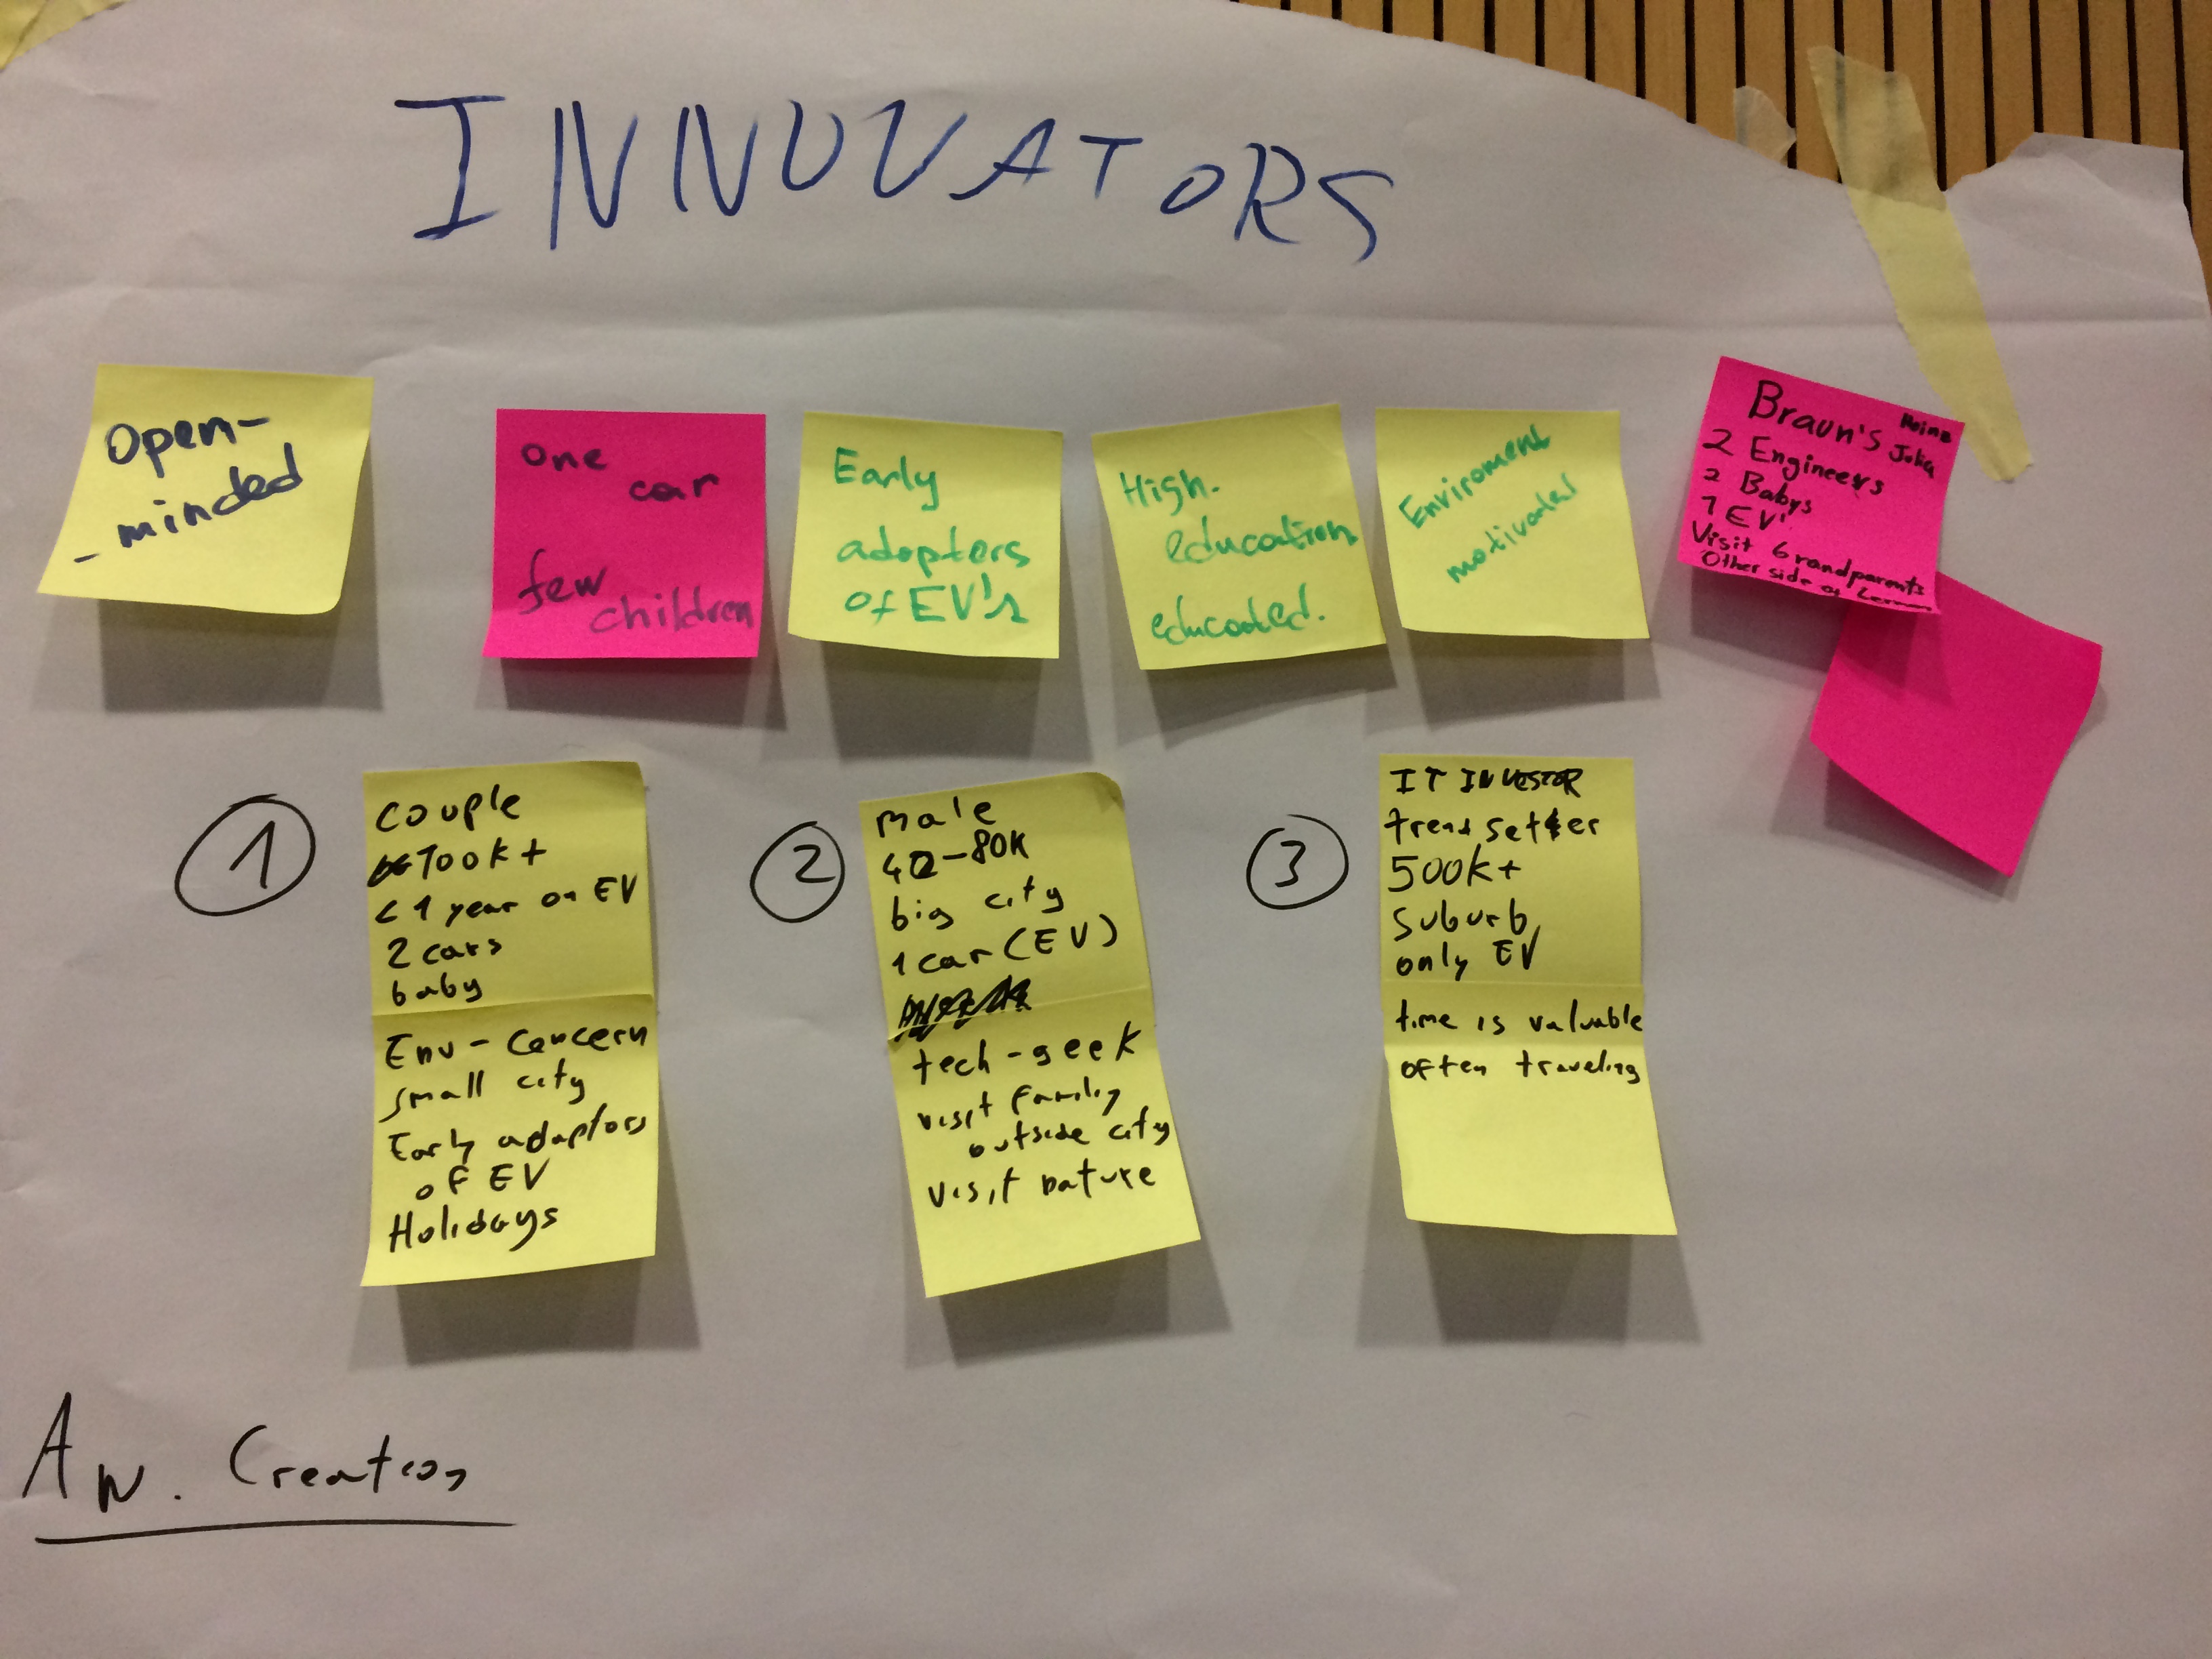 INNOVATORS
Open-
-minded
one
car
few
children
Early
adopters
of EV's
High.
education
educated.
Enviroment
motivated
Braun's
2 Engineers
2 Babys
1 EV'
Visit Grandparents
Other side of
1
couple
100k+
< 1 year on EV
2 cars
baby
Env-Concern
small city
Early adaptors
of EV
Holidays
2
male
40-80K
big city
1 car (EV)
tech-geek
visit family
outside city
visit nature
3
IT INVESTOR
trendsetter
500k+
suburb
only EV
time is valuable
often traveling
AW. Creation